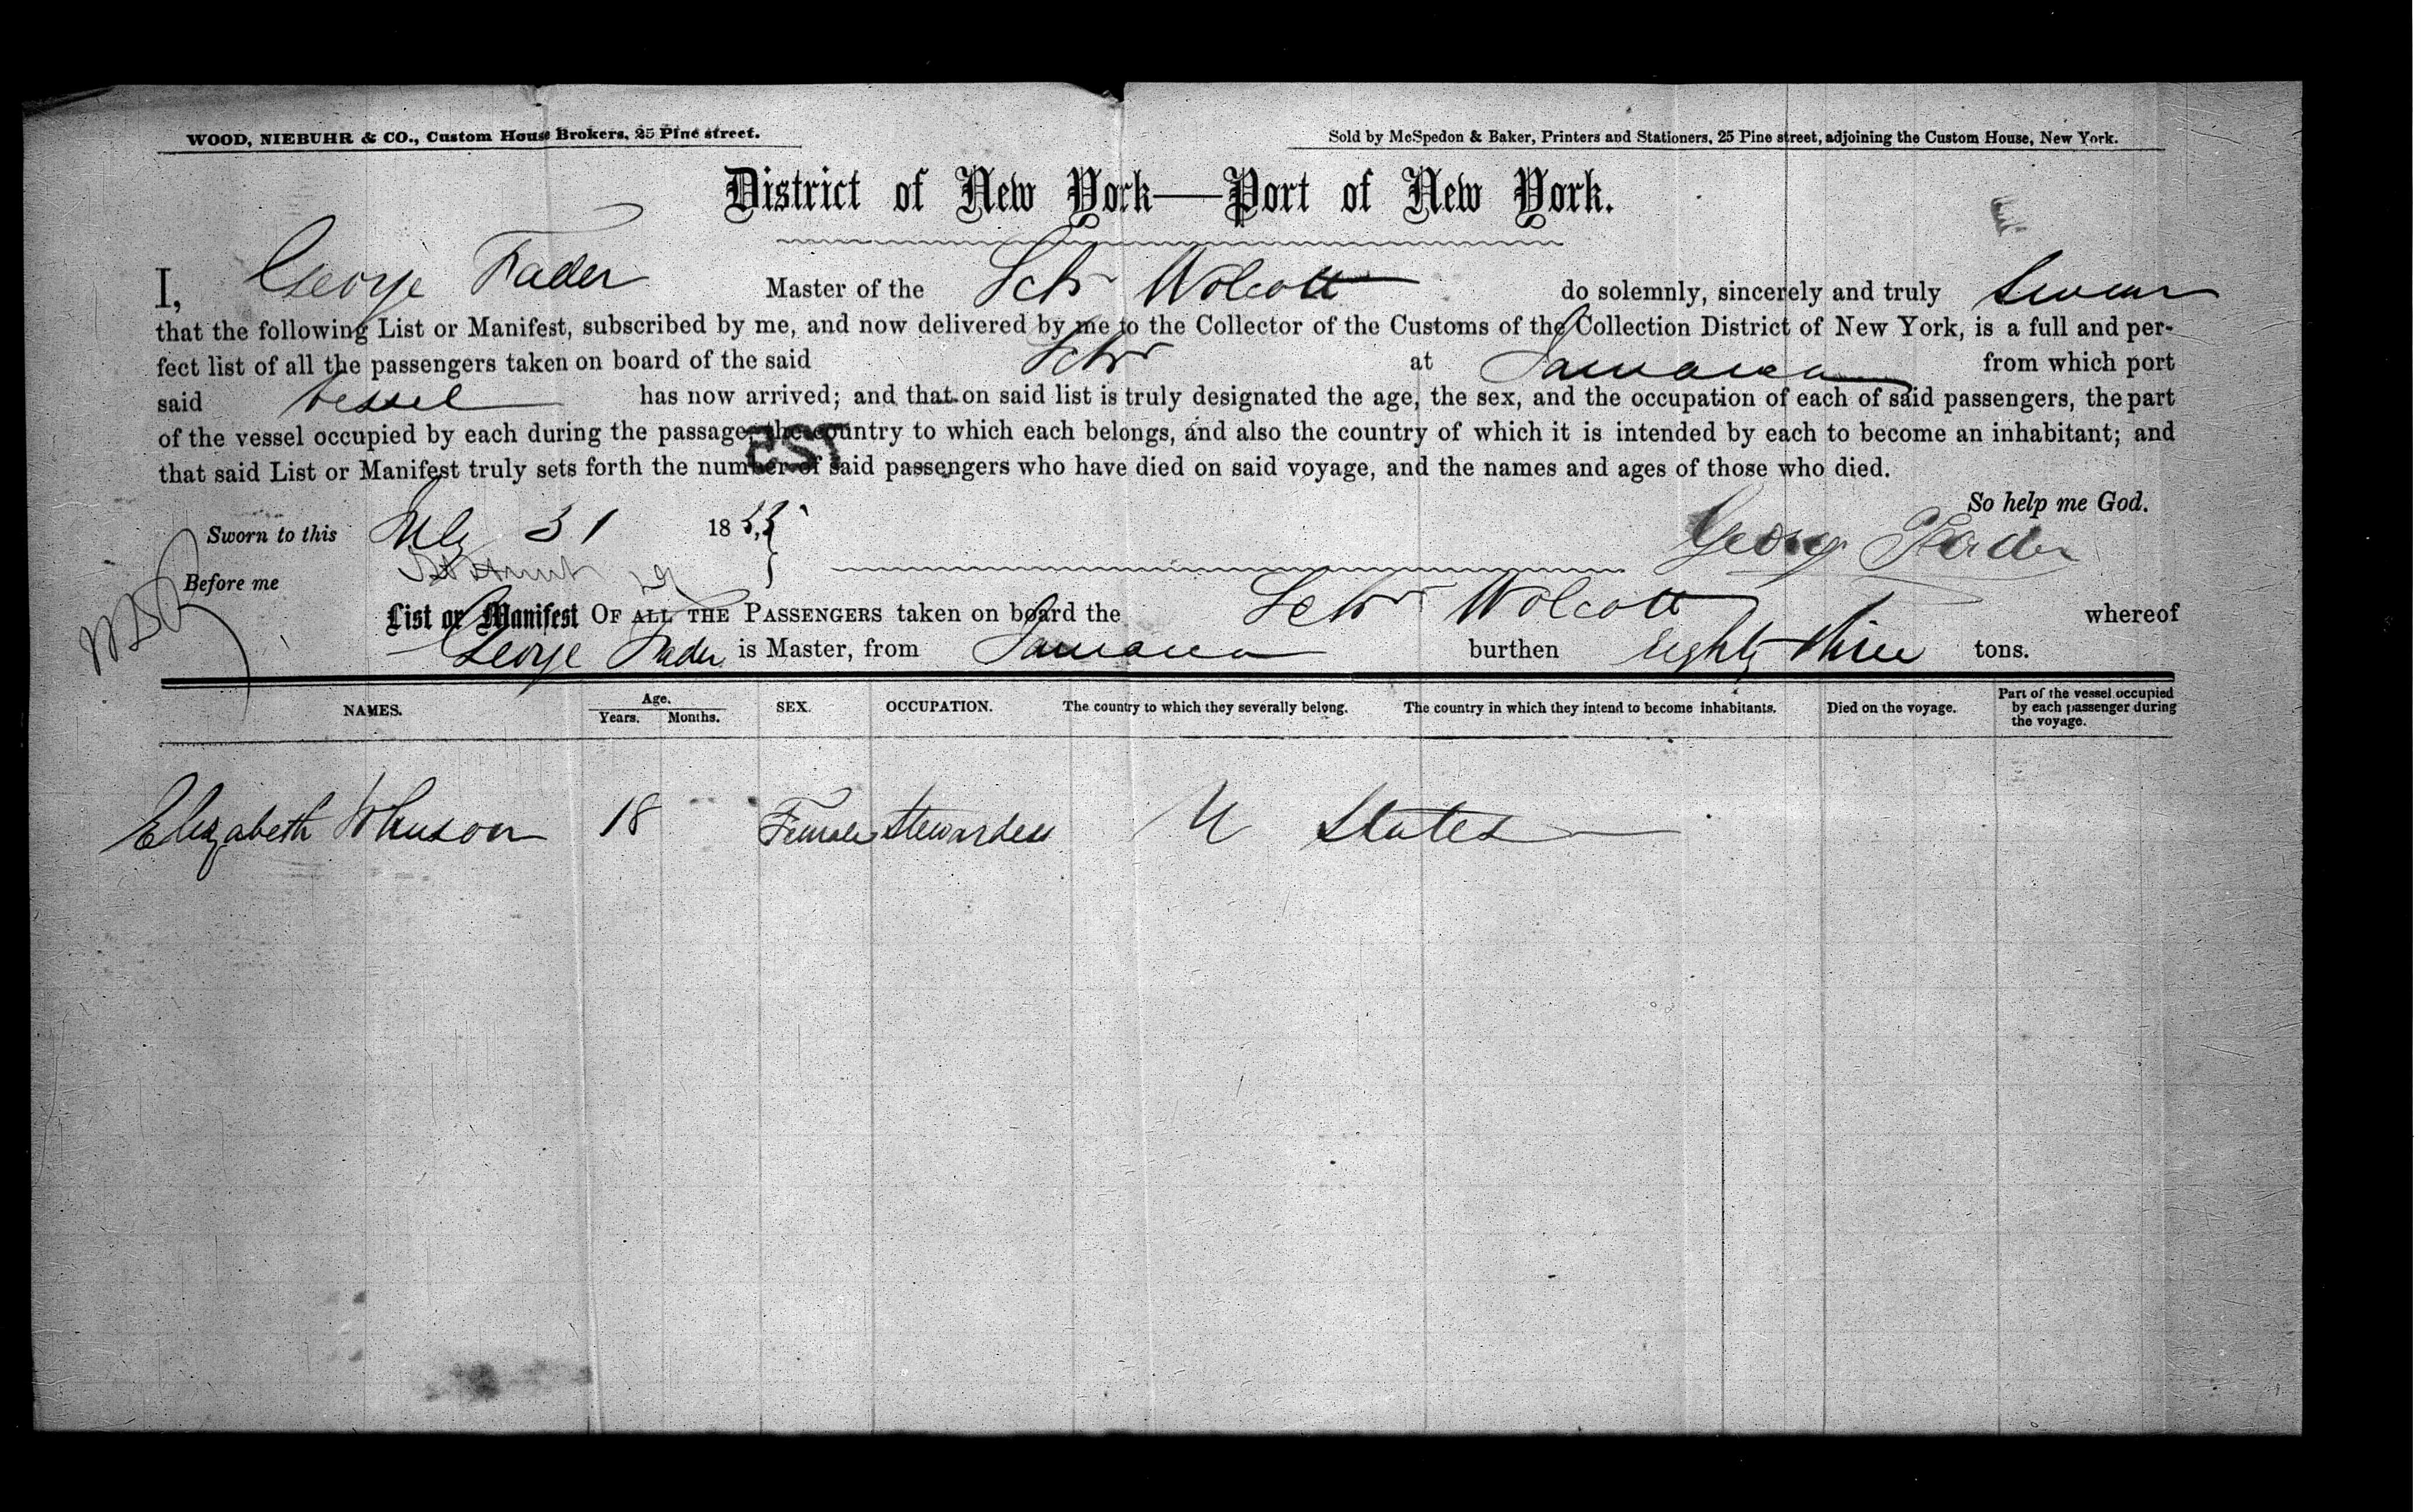 WOOD, NIEBUHR & CO., Custom House Brokers, 25 Pine street.
Sold by McSpedon & Baker, Printers and Stationers, 25 Pine street, adjoining the Custom House, New York.
District of New York—Port of New York.
I, George Fader Master of the Schr Wolcott do solemnly, sincerely and truly swear
that the following List or Manifest, subscribed by me, and now delivered by me to the Collector of the Customs of the Collection District of New York, is a full and per-
fect list of all the passengers taken on board of the said Schr at Samana from which port
said vessel has now arrived; and that on said list is truly designated the age, the sex, and the occupation of each of said passengers, the part
of the vessel occupied by each during the passage, the country to which each belongs, and also the country of which it is intended by each to become an inhabitant; and
that said List or Manifest truly sets forth the number of said passengers who have died on said voyage, and the names and ages of those who died.
So help me God.
Sworn to this July 31 1855
George Fader
Before me
List or Manifest OF ALL THE PASSENGERS taken on board the Schr Wolcott whereof
George Fader is Master, from Samana burthen Eighty three tons.
NAMES. Age. Years. Months. SEX. OCCUPATION. The country to which they severally belong. The country in which they intend to become inhabitants. Died on the voyage. Part of the vessel occupied by each passenger during the voyage.
Elizabeth Johnson 18 Female Stewardess U States